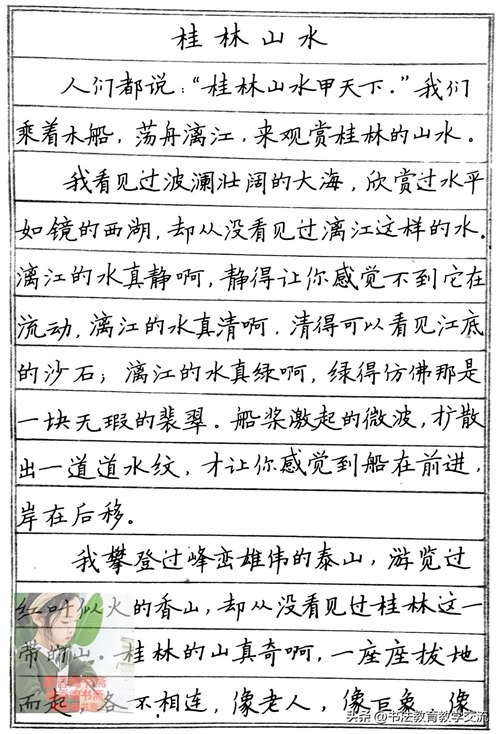 桂林山水
人们都说：“桂林山水甲天下.”我们
乘着木船，荡舟漓江，来观赏桂林的山水。
我看见过波澜壮阔的大海，欣赏过水平
如镜的西湖，却从没看见过漓江这样的水.
漓江的水真静啊，静得让你感觉不到它在
流动，漓江的水真清啊，清得可以看见江底
的沙石；漓江的水真绿啊，绿得仿佛那是
一块无瑕的翡翠．船桨激起的微波，扩散
出一道道水纹，才让你感觉到船在前进，
岸在后移。
我攀登过峰峦雄伟的泰山，游览过
红叶似火的香山，却从没看见过桂林这一
带的山．桂林的山真奇啊，一座座拔地
而起，各不相连，像老人，像巨象，像
头条 @书法教育教学交流